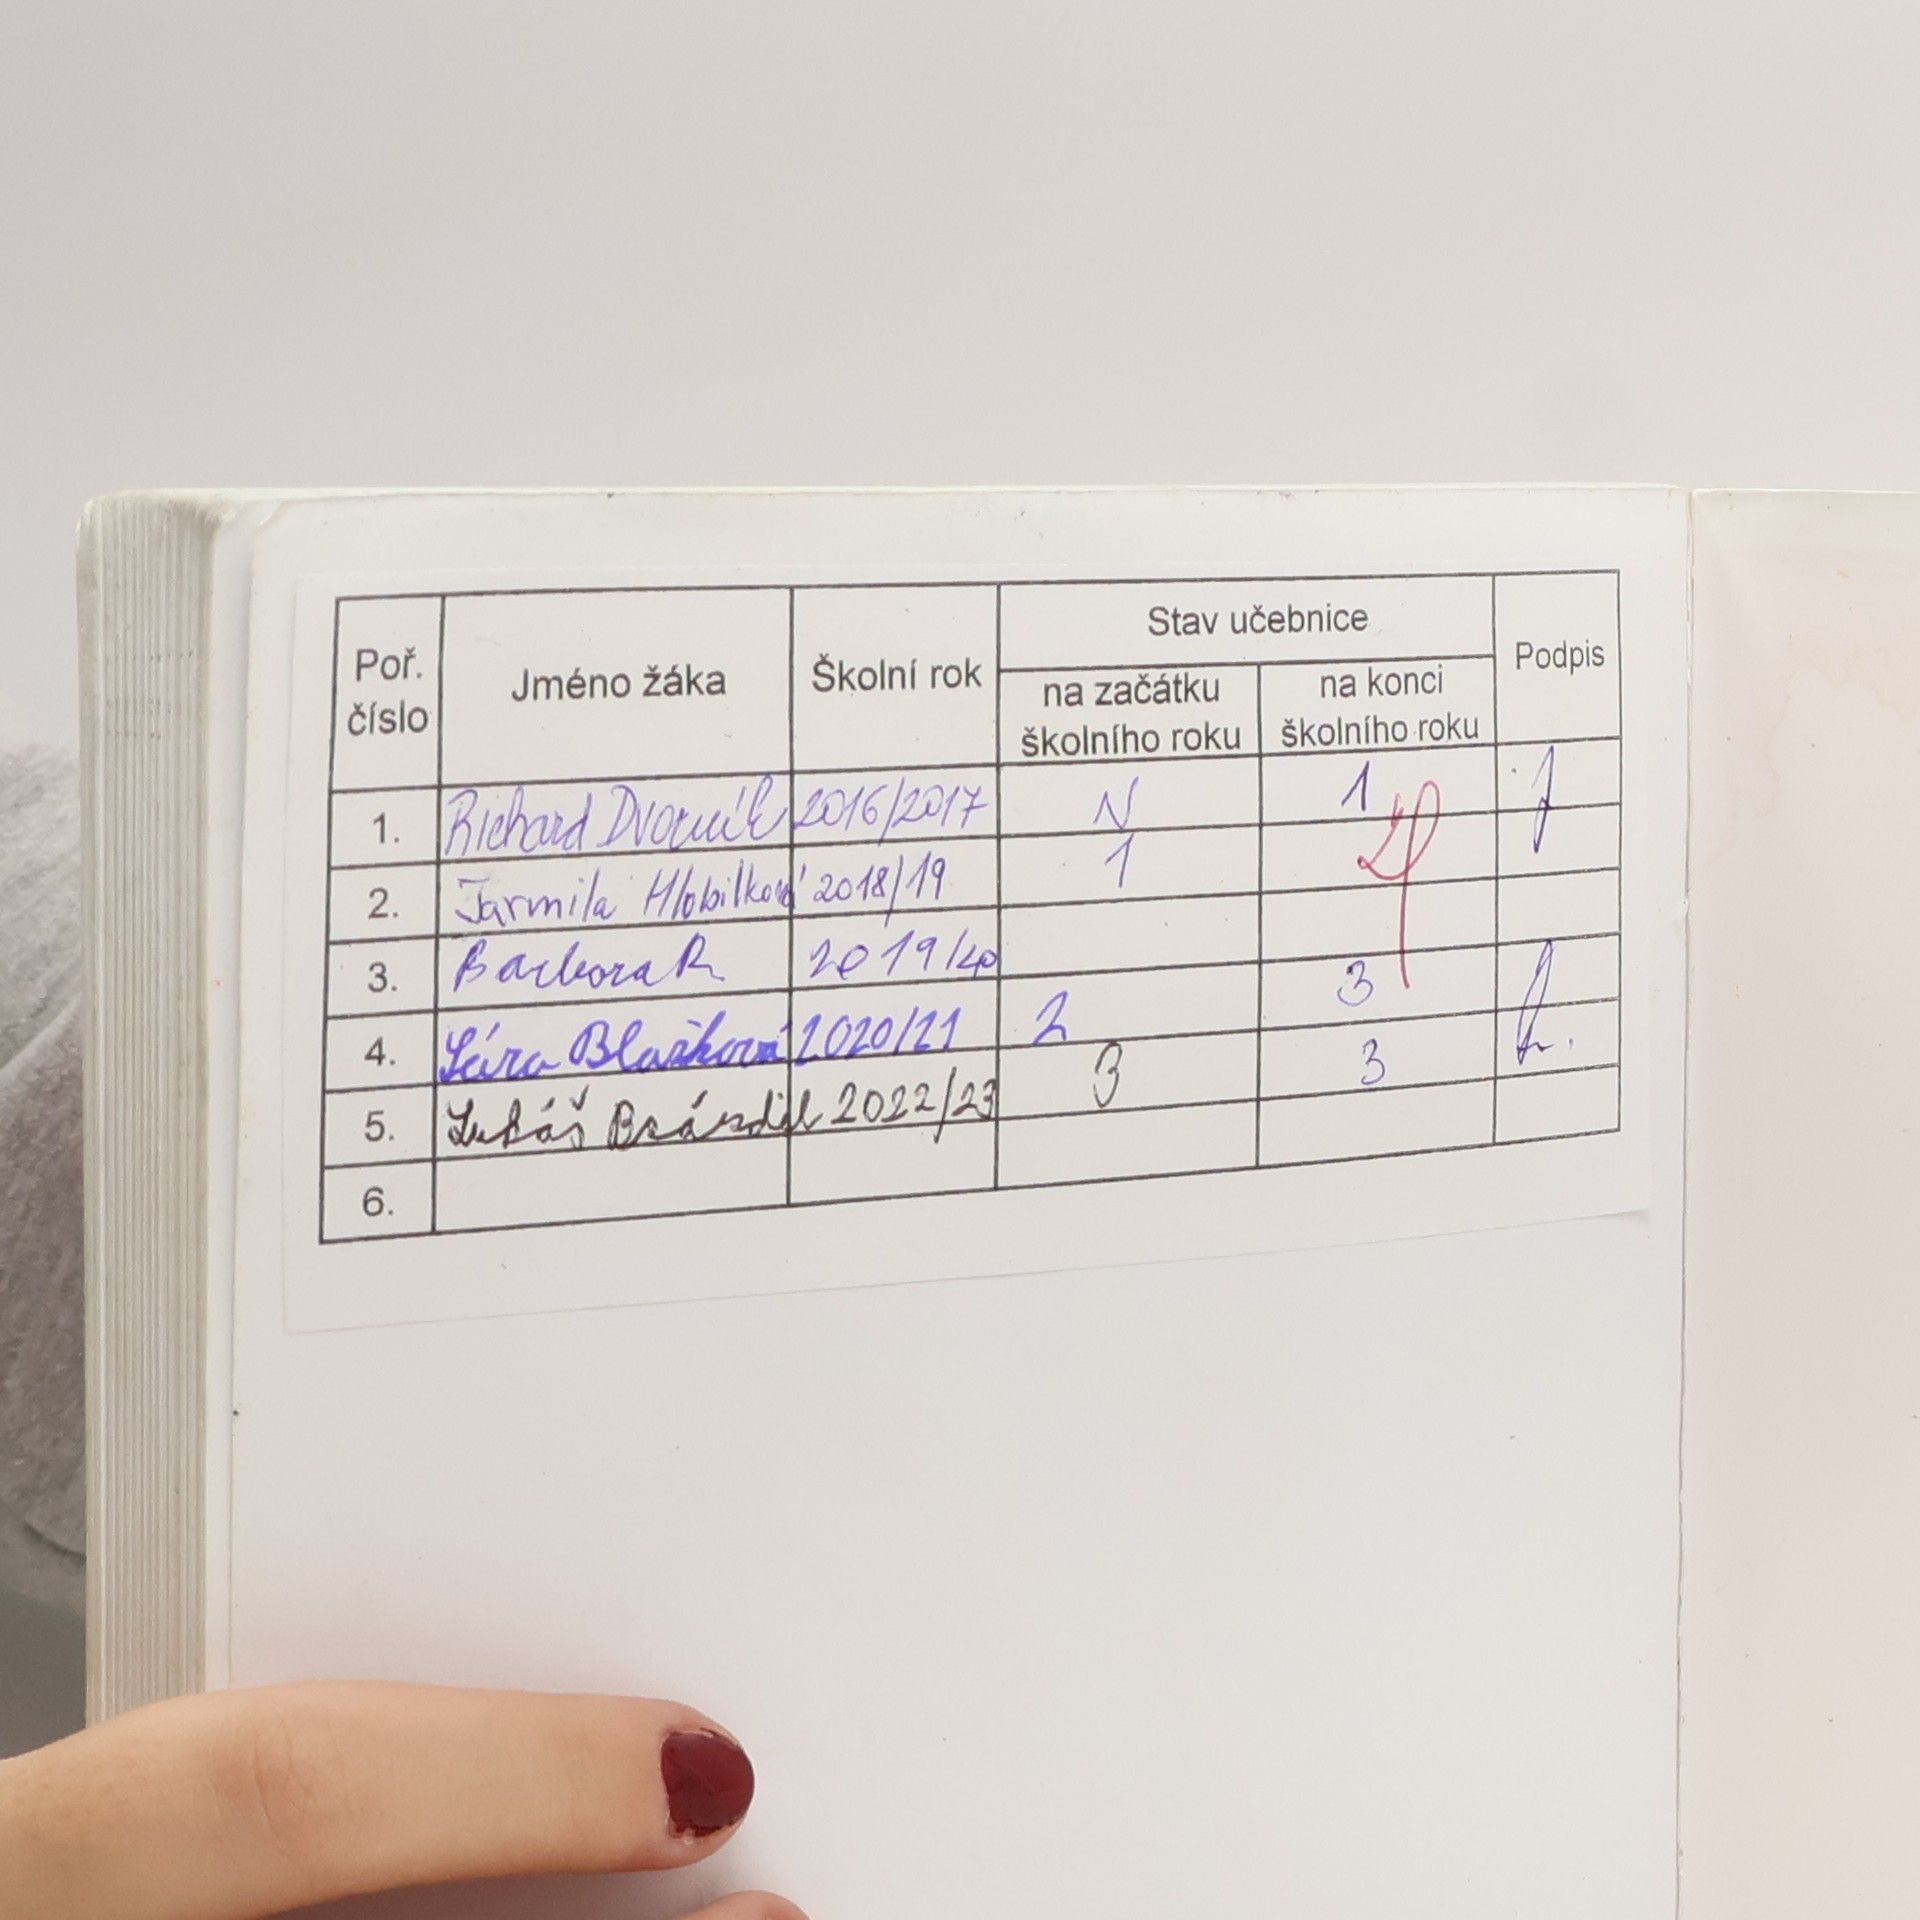 Poř. číslo Jméno žáka Školní rok Stav učebnice Podpis
na začátku školního roku na konci školního roku
1. Richard Dvořák 2016/2017 N 1
2. Jarmila Hlobilková 2018/19 1
3. Barbora R 2019/20
4. Sára Blažková 2020/21 2 3
5. Lukáš Brázdil 2022/23 3 3
6.